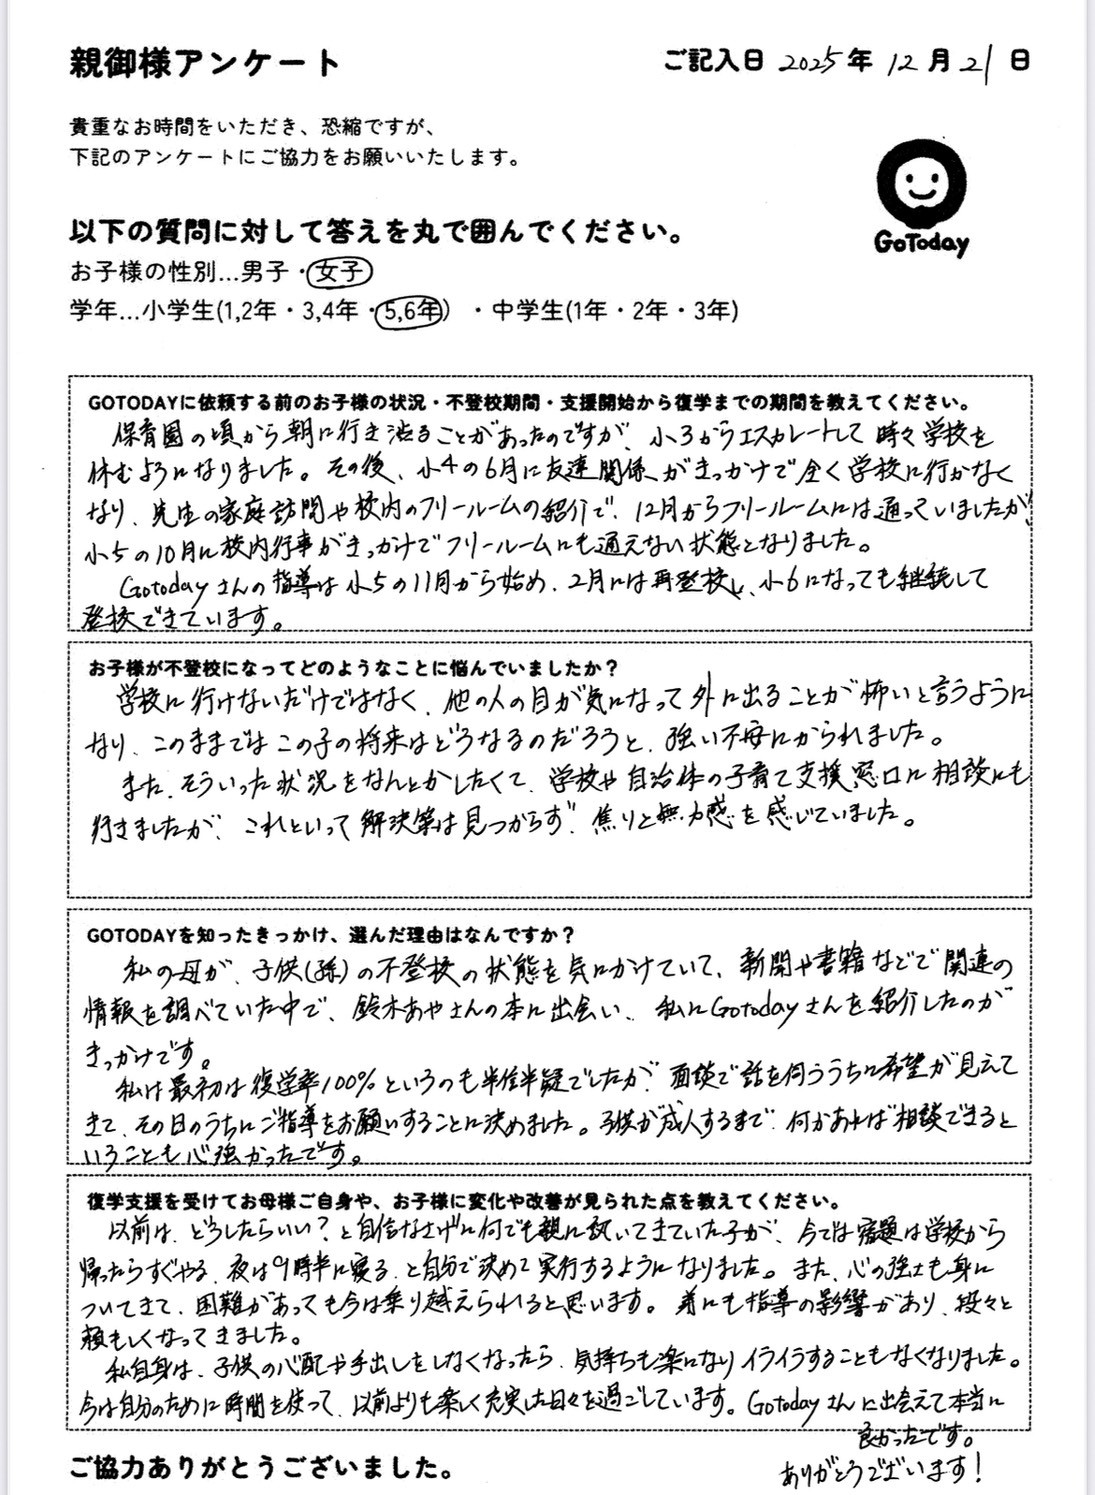 親御様アンケート
ご記入日 2025年 12月 21日
貴重なお時間をいただき、恐縮ですが、
下記のアンケートにご協力をお願いいたします。
GoToday
以下の質問に対して答えを丸で囲んでください。
お子様の性別…男子・女子
学年…小学生(1,2年・3,4年・5,6年)・中学生(1年・2年・3年)
GOTODAYに依頼する前のお子様の状況・不登校期間・支援開始から復学までの期間を教えてください。
保育園の頃から朝に行き渋ることがあったのですが、小3からエスカレートして時々学校を
休むようになりました。その後、小4の6月に友達関係がきっかけで全く学校に行かなく
なり、先生の家庭訪問や校内のフリールームの紹介で、12月からフリールームには通っていましたが、
小5の10月に校内行事がきっかけでフリールームにも通えない状態となりました。
Gotodayさんの指導は小5の11月から始め、2月には再登校し、小6になっても継続して
登校できています。
お子様が不登校になってどのようなことに悩んでいましたか？
学校に行けないだけではなく、他の人の目が気になって外に出ることが怖いと言うように
なり、このままではこの子の将来はどうなるのだろうと、強い不安にかられました。
また、そういった状況をなんとかしたくて、学校や自治体の子育て支援窓口に相談にも
行きましたが、これといって解決策は見つからず、焦りと無力感を感じていました。
GOTODAYを知ったきっかけ、選んだ理由はなんですか？
私の母が、子供(孫)の不登校の状態を気にかけていて、新聞や書籍などで関連の
情報を調べていた中で、鈴木あやさんの本に出会い、私にGotodayさんを紹介したのが
きっかけです。
私は最初は復学率100%というのも半信半疑でしたが、面談で話を伺ううちに希望が見えて
きて、その日のうちにご指導をお願いすることに決めました。子供が成人するまで、何かあれば相談できると
いうことも心強かったです。
復学支援を受けてお母様ご自身や、お子様に変化や改善が見られた点を教えてください。
以前は、どうしたらいい？と自信なさげに何でも親に訊いてきていた子が、今では宿題は学校から
帰ったらすぐやる、夜は9時半に寝る、と自分で決めて実行するようになりました。また、心の強さも身に
ついてきて、困難があっても今は乗り越えられると思います。弟にも指導の影響があり、段々と
頼もしくなってきました。
私自身は、子供の心配や手出しをしなくなったら、気持ちも楽になりイライラすることもなくなりました。
今は自分のために時間を使って、以前よりも楽しく充実した日々を過ごしています。Gotodayさんに出会えて本当に
良かったです。
ありがとうございます！
ご協力ありがとうございました。